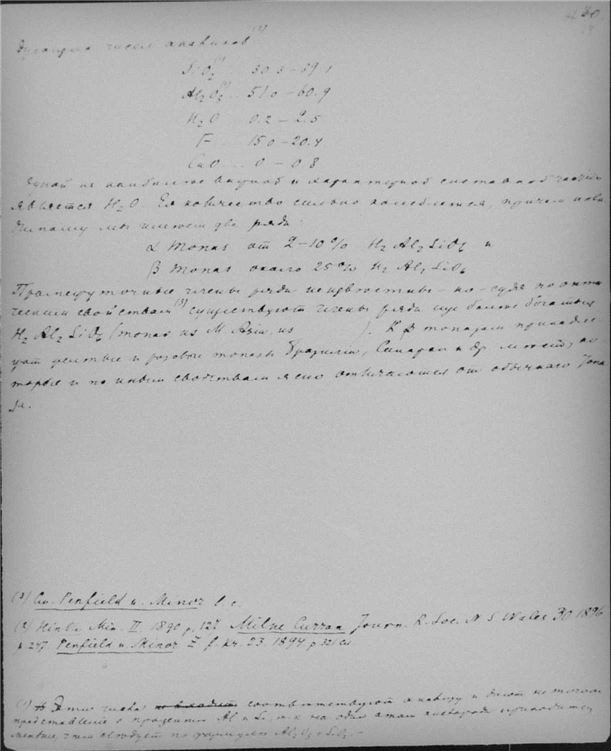 дующия числа анализов (1)
SiO2 (2) .. 30.3 – 39.1
Al2O3 .. 51.0 – 60.9
H2O .. 0.2 – 2.5
F .. 15.0 – 20.4
CaO .. 0 – 0.8
Одной из наиболее важной и характерной составной частью
является H2O. Ея количество сильно колеблется, причем
мы имеем два ряда:
α топаз от 2–10% H2Al2SiO6 и
β топаз около 25% H2Al2SiO6
Промежуточные члены ряда неизвестны – но – судя по опти
ческим свойствам (3) существуют члены ряда еще более богатые
H2Al2SiO6 (топаз из М. Азии, из ). К β топазам принадле
жат желтые и розовые топазы Бразилии, и др. мест, ко
торые и по иным свойствам ясно отличаются от обычного топа
за.
(1) Penfield u. Minor l. c.
(2) Hintze Min. II. 1890 p. 127 Milne Curran Journ. R. Soc. N. S. Wales 30. 1896
p. 247. Penfield u. Minor Z. f. Kr. 23. 1894 p. 321
Эти числа соответствуют анализу и дают не точное
представление о проценте Al и Si, т. к. на один атом кислорода приходится
менее, чем следует по формулы Al2O3 SiO2.